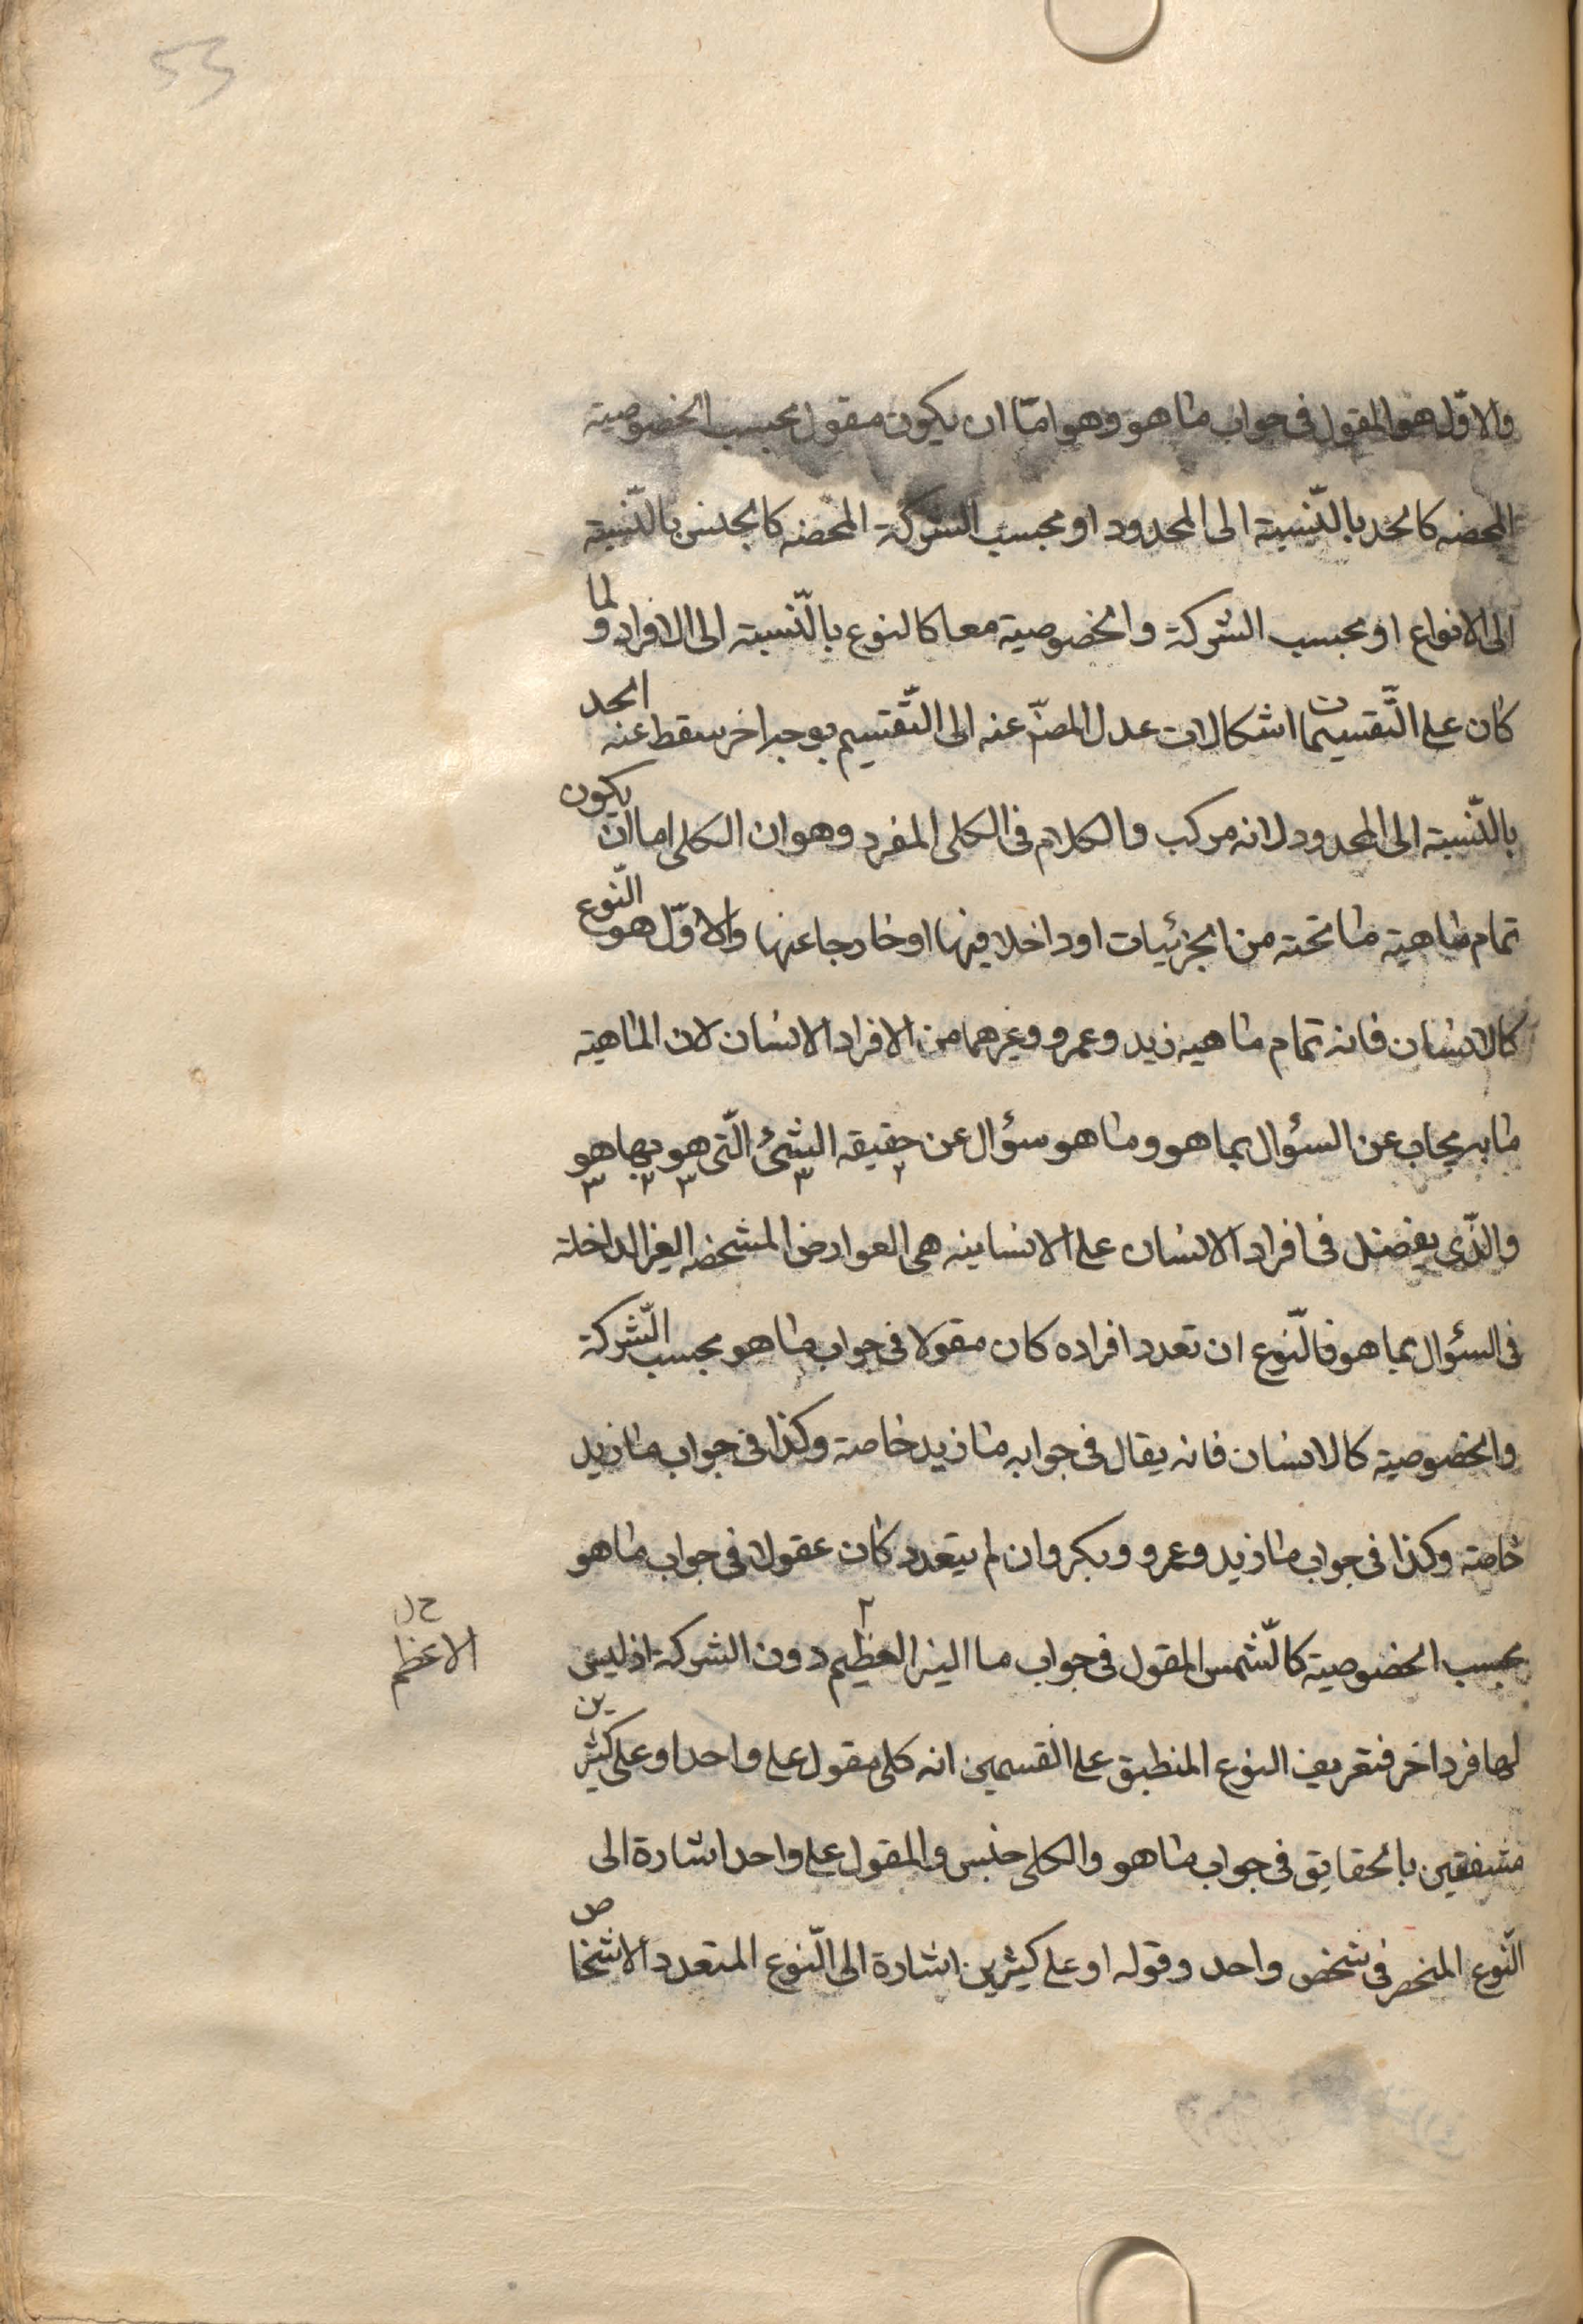 53
والاوّل هو المقول فى جواب ما هو وهو امّا ان يكون مقول بحسب الخصوصية
المحضه كالحد بالنّسبة الى المحدود او بحسب الشركة المحضه كالجنس بالنّسبة
الى الانواع او بحسب الشركة والخصوصية معا كالنوع بالنّسبة الى الافراد ولما
كان على التّقسيمات اشكالات عدل المصنّ عنه الى التّقسيم بوجه اخر سقط عنه الحد
بالنّسبة الى المحدود لانه مركب والكلام فى الكلى المفرد وهو ان الكلى اما ان يكون
تمام ماهية ما تحته من الجزئيات او داخلا فيها او خارجا عنها والاوّل هو النّوع
كالانسان فانه تمام ماهيه زيد وعمرو وغيرهما من الافراد الانسان لان الماهية
ما به يجاب عن السؤال بما هو وما هو سؤال عن حقيقه الشئ الّتى هو بها هو
والذّى يفضل فى افراد الانسان على الانسانيه هى العوارض المشخصه الغير الداخلة
فى السئوال بما هو فالنّوع ان تعدد افراده كان مقولا فى جواب ما هو بحسب الشّركة
والخصوصية كالانسان فانه يقال فى جوابه ما زيد خاصة وكذا فى جواب ما زيد
خاصة وكذا فى جواب ما زيد وعمرو وبكر وان لم يتعدد كان عقولا فى جواب ما هو
بحسب الخصوصية كالشّمس المقول فى جواب ما النير العظيم دون الشركة اذ ليس
الاعظم
لها فرد اخر فتعريف النوع المنطبق على القسمين انه كلى مقول على واحد او على كثيرين
متفقين بالحقايق فى جواب ما هو والكلى جنس والمقول على واحد اشارة الى
النّوع المنحصر فى شخص واحد وقوله او على كثيرين اشارة الى النّوع المتعدد الاشخاص